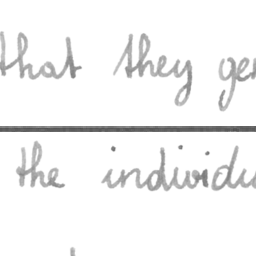 that they ge
the individu